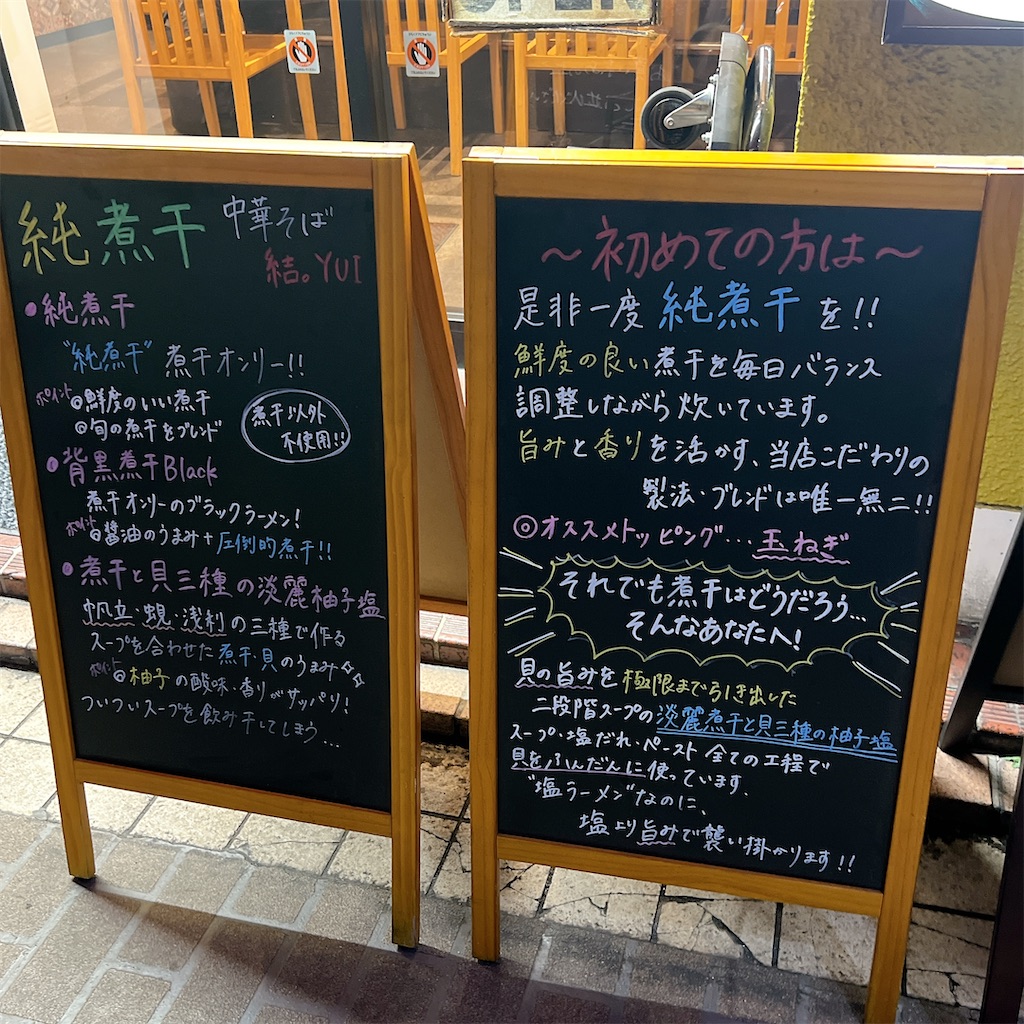 純煮干 中華そば
結。YUI
・純煮干
"純煮干" 煮干オンリー!!
ポイント ◎鮮度のいい煮干
◎旬の煮干をブレンド
煮干以外
不使用!!
・背黒煮干Black
煮干オンリーのブラックラーメン!
ポイント ◎醤油のうまみ+圧倒的煮干!!
・煮干と貝三種の淡麗柚子塩
帆立・蜆・浅利の三種で作る
スープを合わせた煮干・貝のうまみ☆☆
柚子の酸味・香りがサッパリ!
ついついスープを飲み干してしまう…
~初めての方は~
是非一度 純煮干 を!!
鮮度の良い煮干を毎日バランス
調整しながら炊いています。
旨みと香りを活かす、当店こだわりの
製法・ブレンドは唯一無二!!
◎オススメトッピング…玉ねぎ
それでも煮干はどうだろう…
そんなあなたへ!
貝の旨みを極限まで引き出した
二段階スープの淡麗煮干と貝三種の柚子塩
スープ・塩だれ・ペースト 全ての工程で
貝をふんだんに使っています、
"塩ラーメン"なのに、
塩より旨みで襲い掛かります!!